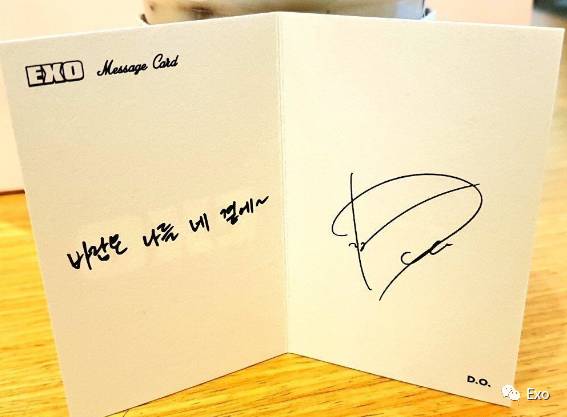 EXO Message Card
바람은 나를 네 곁에~
D.O.
Exo